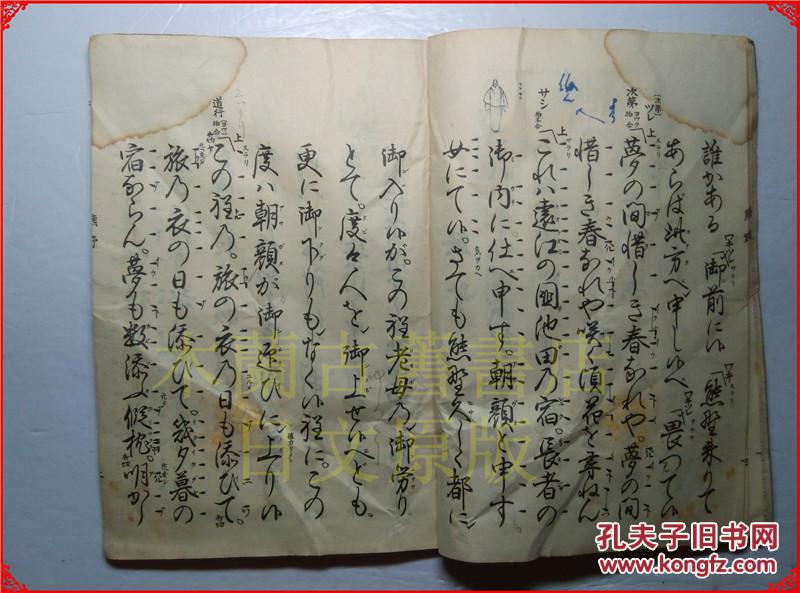 誰かある 御前に候 熊野来りて
あらば此方へ申し候へ 畏つて候
次第
ツレ
上
夢の間惜しき春なれや。夢の間
惜しき春なれや咲く頃花を尋ねん
サシ
上
これハ遠江の国池田乃宿。長者の
御内に仕へ申す。朝顔と申す
女にて候。さても熊野久しく都に
御入り候が。この程老母乃御労り
とて。度々人を御上せ候へども。
更に御下りもなく候程に。この
度ハ朝顔が御迎ひに上り候
道行
上
この程乃。旅の衣乃日も添ひて。
旅乃衣の日も添ひて。幾夕暮の
宿ならん。夢も数添ふ仮枕。明かし
木蘭古舊書店
日文原版
孔夫子旧书网
www.kongfz.com